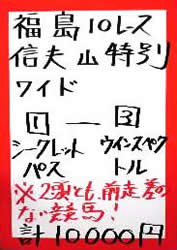 福島10レース
信夫山特別
ワイド
1－3
シークレット ウインスペク
パス トル
※2頭とも前走差の
ない競馬!
計10000円